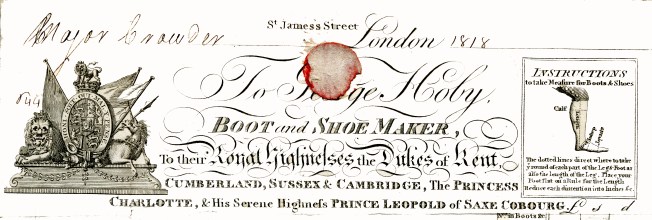 St James's Street
Major Crowder London 1818
To George Hoby,
BOOT and SHOE MAKER,
To their Royal Highneſses the Dukes of Kent,
CUMBERLAND, SUSSEX & CAMBRIDGE, The PRINCESS
CHARLOTTE, & His Serene Highneſs PRINCE LEOPOLD of SAXE COBOURG. £ s d
INSTRUCTIONS
to take Meaſure for Boots & Shoes
Calf
The dotted lines direct where to take
ye round of each part of the Leg & Foot as
also the length of the Leg. Place your
Foot flat on a Rule for the Length
Reduce each dimention into Inches &c.